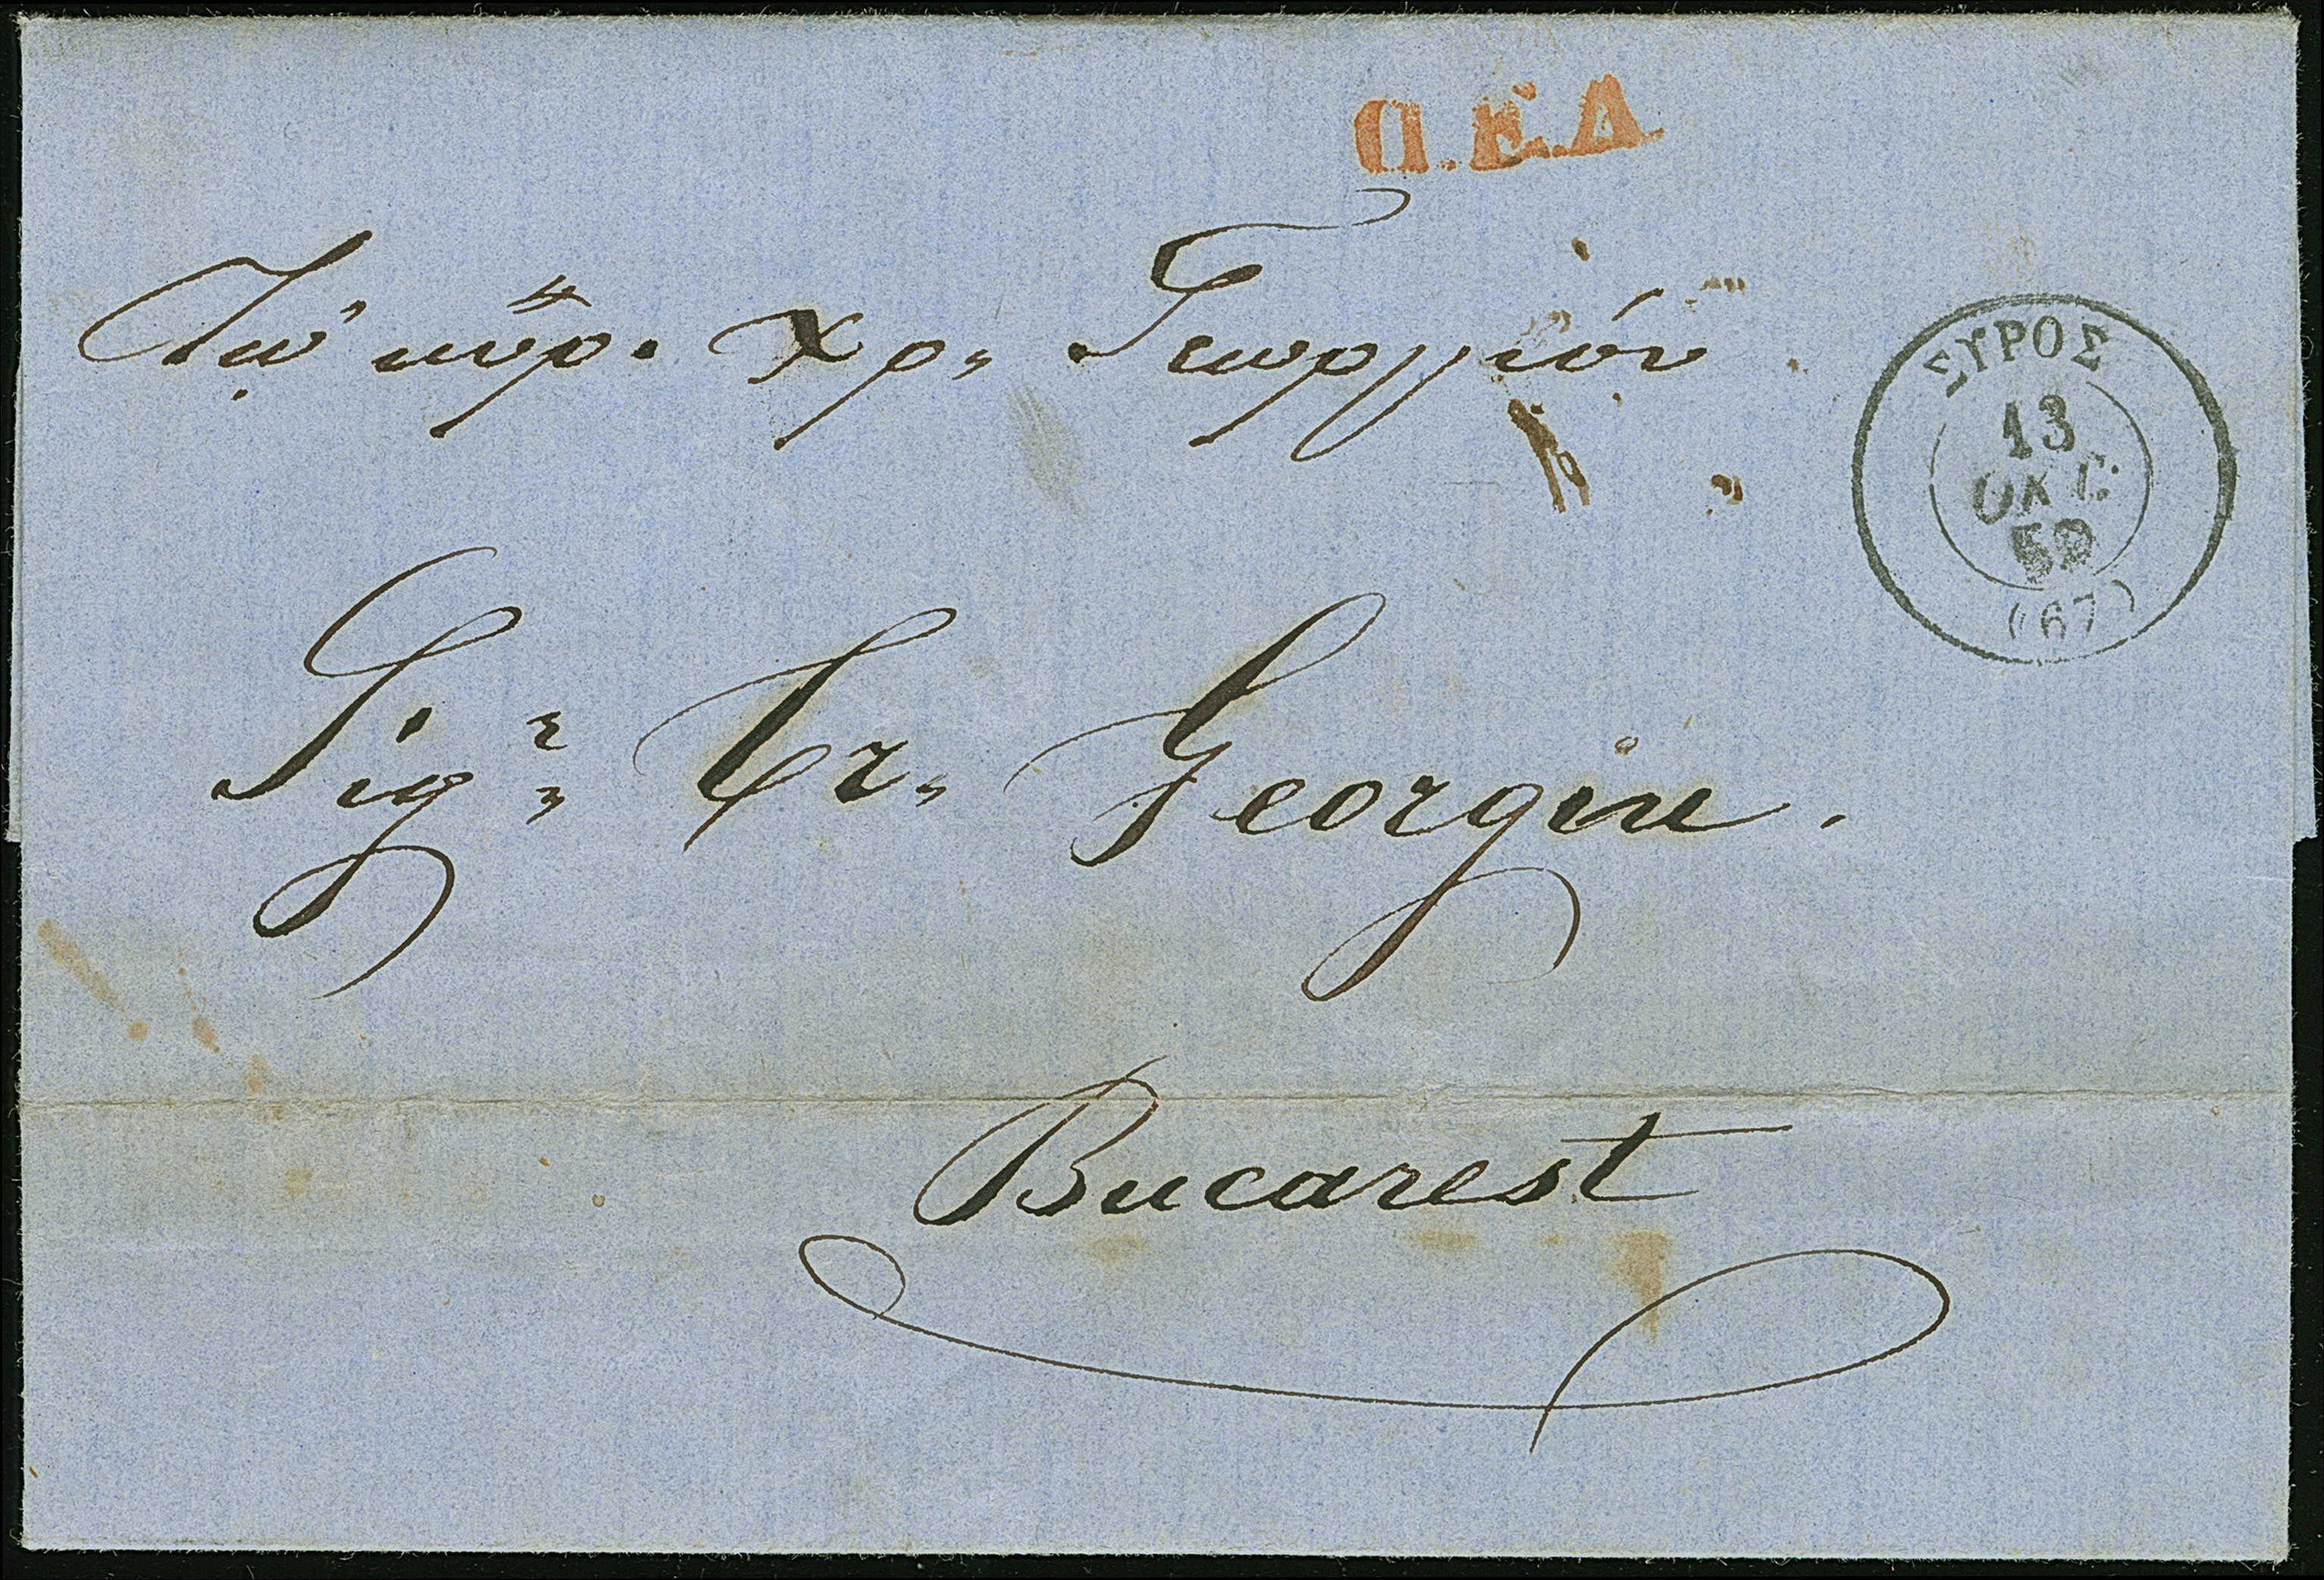 Π.Ε.Δ.
Τῷ κυρ. Χρ. Γεωργίου
ΣΥΡΟΣ
13
ΟΚΤ.
59
(67)
Sigr. Cr. Georgiu.
Bucarest